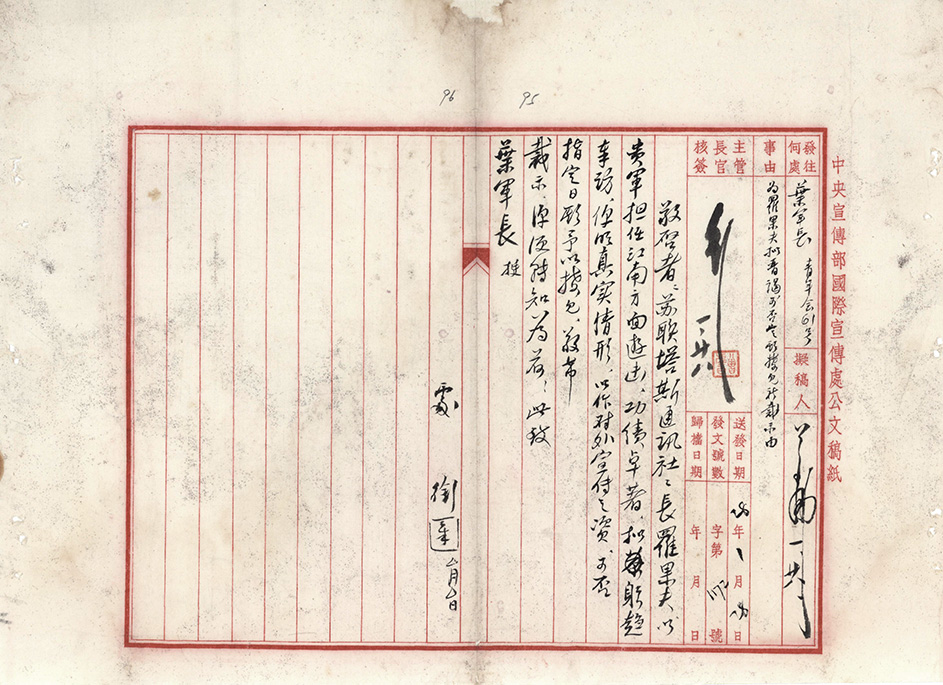 96
95
中央宣傳部國際宣傳處公文稿紙
發往何處
葉軍長 青年会61号
擬稿人
事由
為羅果夫擬晋謁可否定期接見祈示由
主管長官核簽
送發日期 28年1月28日
發文號數 字第 號
歸檔日期 年 月 日
敬啓者:苏联塔斯通訊社社長羅果夫以
貴軍担任江南方面遊击,功績卓著,拟躬趨
奉訪,俾明真实情形,以作对外宣传之資,可否
指定日期予以接見,敬希
裁示,俾便轉知為荷,此致
葉軍長
處 銜 △月△日